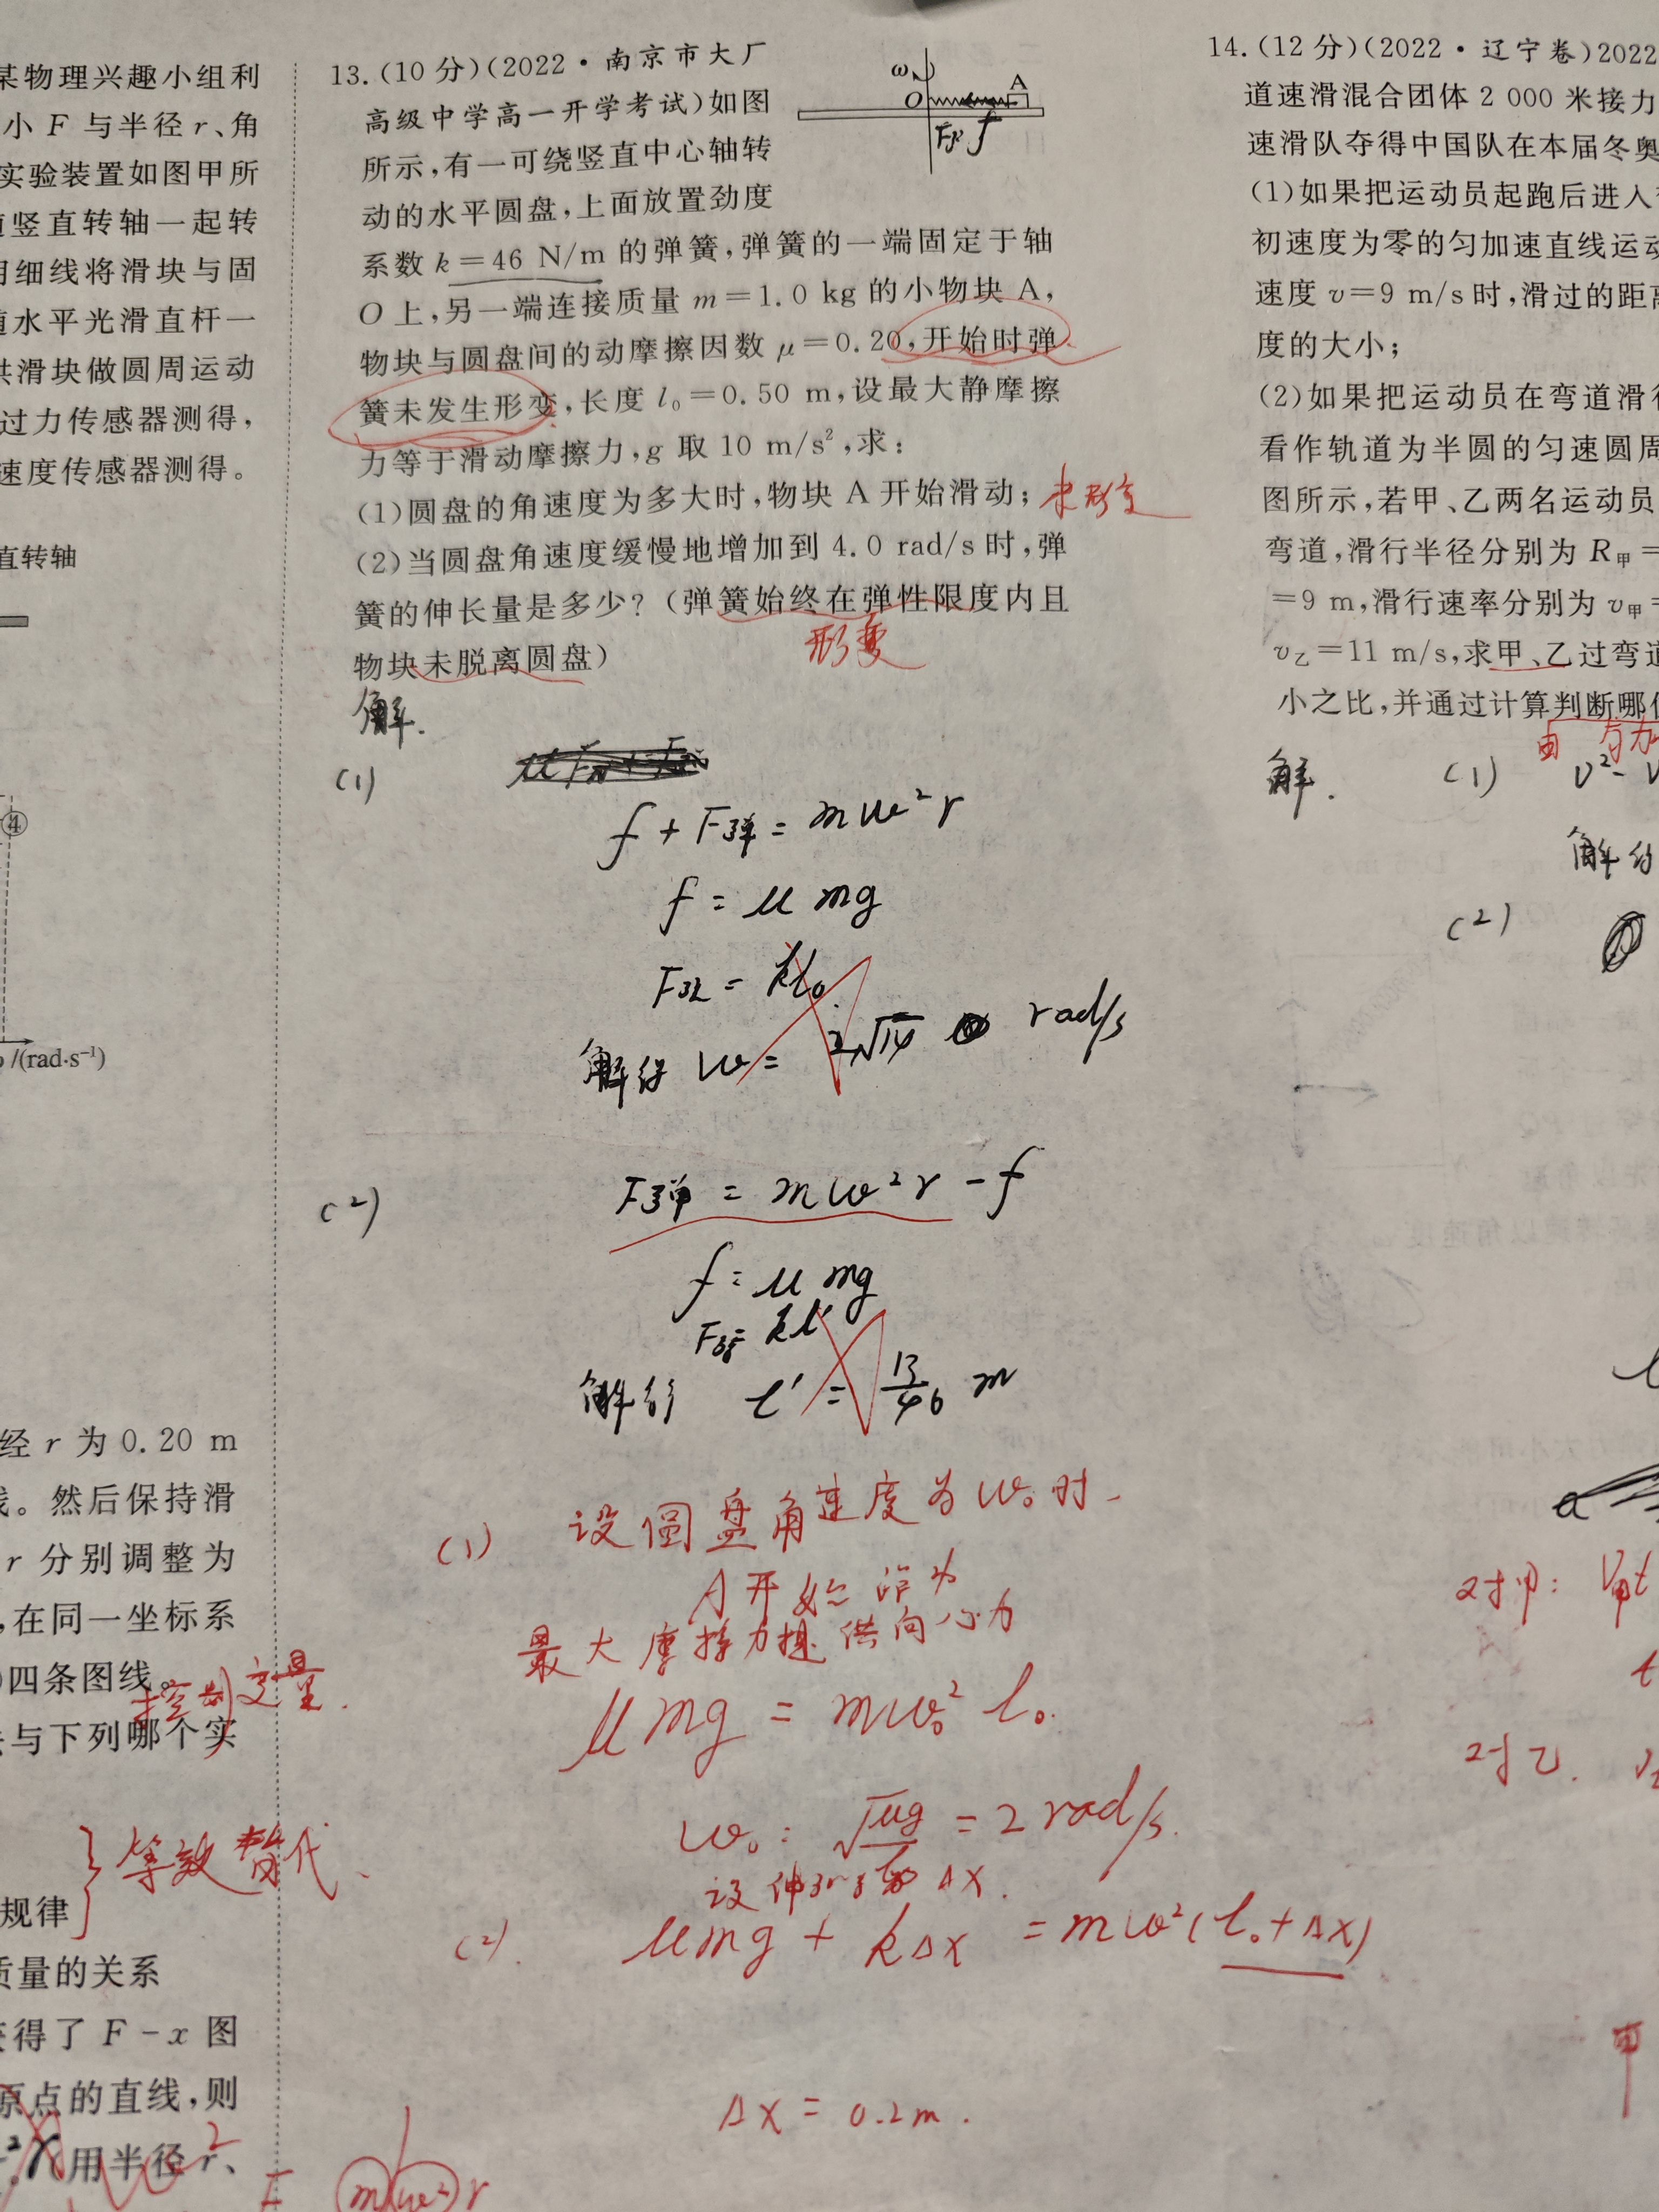 某物理兴趣小组利
小 F 与半径 r、角
实验装置如图甲所
竖直转轴一起转
用细线将滑块与固
水平光滑直杆一
供滑块做圆周运动
过力传感器测得,
速度传感器测得。
直转轴
④
/(rad·s⁻¹)
经 r 为 0.20 m
。然后保持滑
r 分别调整为
,在同一坐标系
四条图线。
控制变量.
与下列哪个实
}等效替代、
规律
质量的关系
获得了 F-x 图
原点的直线,则
用半径 r、
F mω² r
13.(10 分)(2022·南京市大厂
高级中学高一开学考试)如图
所示,有一可绕竖直中心轴转
动的水平圆盘,上面放置劲度
系数 k=46 N/m 的弹簧,弹簧的一端固定于轴
O 上,另一端连接质量 m=1.0 kg 的小物块 A,
物块与圆盘间的动摩擦因数 μ=0.20,开始时弹
簧未发生形变,长度 l₀=0.50 m,设最大静摩擦
力等于滑动摩擦力,g 取 10 m/s²,求:
(1)圆盘的角速度为多大时,物块 A 开始滑动; 未形变
(2)当圆盘角速度缓慢地增加到 4.0 rad/s 时,弹
簧的伸长量是多少?(弹簧始终在弹性限度内且
形变
物块未脱离圆盘)
ω
O
A
f
解.
(1)
f + F弹 = mω²r
f = μmg
F弹 = kl₀
解得 ω = 2√14 rad/s
(2) F弹 = mω²r - f
f = μmg
F弹 = kl'
解得 l' = 13/46 m
(1) 设圆盘角速度为ω₀时
A开始滑动
最大摩擦力提供向心力
μmg = mω₀² l₀.
ω₀ = √μg/l₀ = 2 rad/s.
设伸长量为 Δx.
(2). μmg + kΔx = mω²(l₀+Δx)
Δx = 0.2m.
14.(12 分)(2022·辽宁卷)2022
道速滑混合团体 2 000 米接力
速滑队夺得中国队在本届冬奥
(1)如果把运动员起跑后进入
初速度为零的匀加速直线运动
速度 v=9 m/s 时,滑过的距离
度的大小;
(2)如果把运动员在弯道滑行
看作轨道为半圆的匀速圆周
图所示,若甲、乙两名运动员
弯道,滑行半径分别为 R甲=
=9 m,滑行速率分别为 v甲=
v乙=11 m/s,求甲、乙过弯道
小之比,并通过计算判断哪位
由 匀加
解. (1) v²-
解得
(2)
对甲: v甲t
t
对乙.
甲